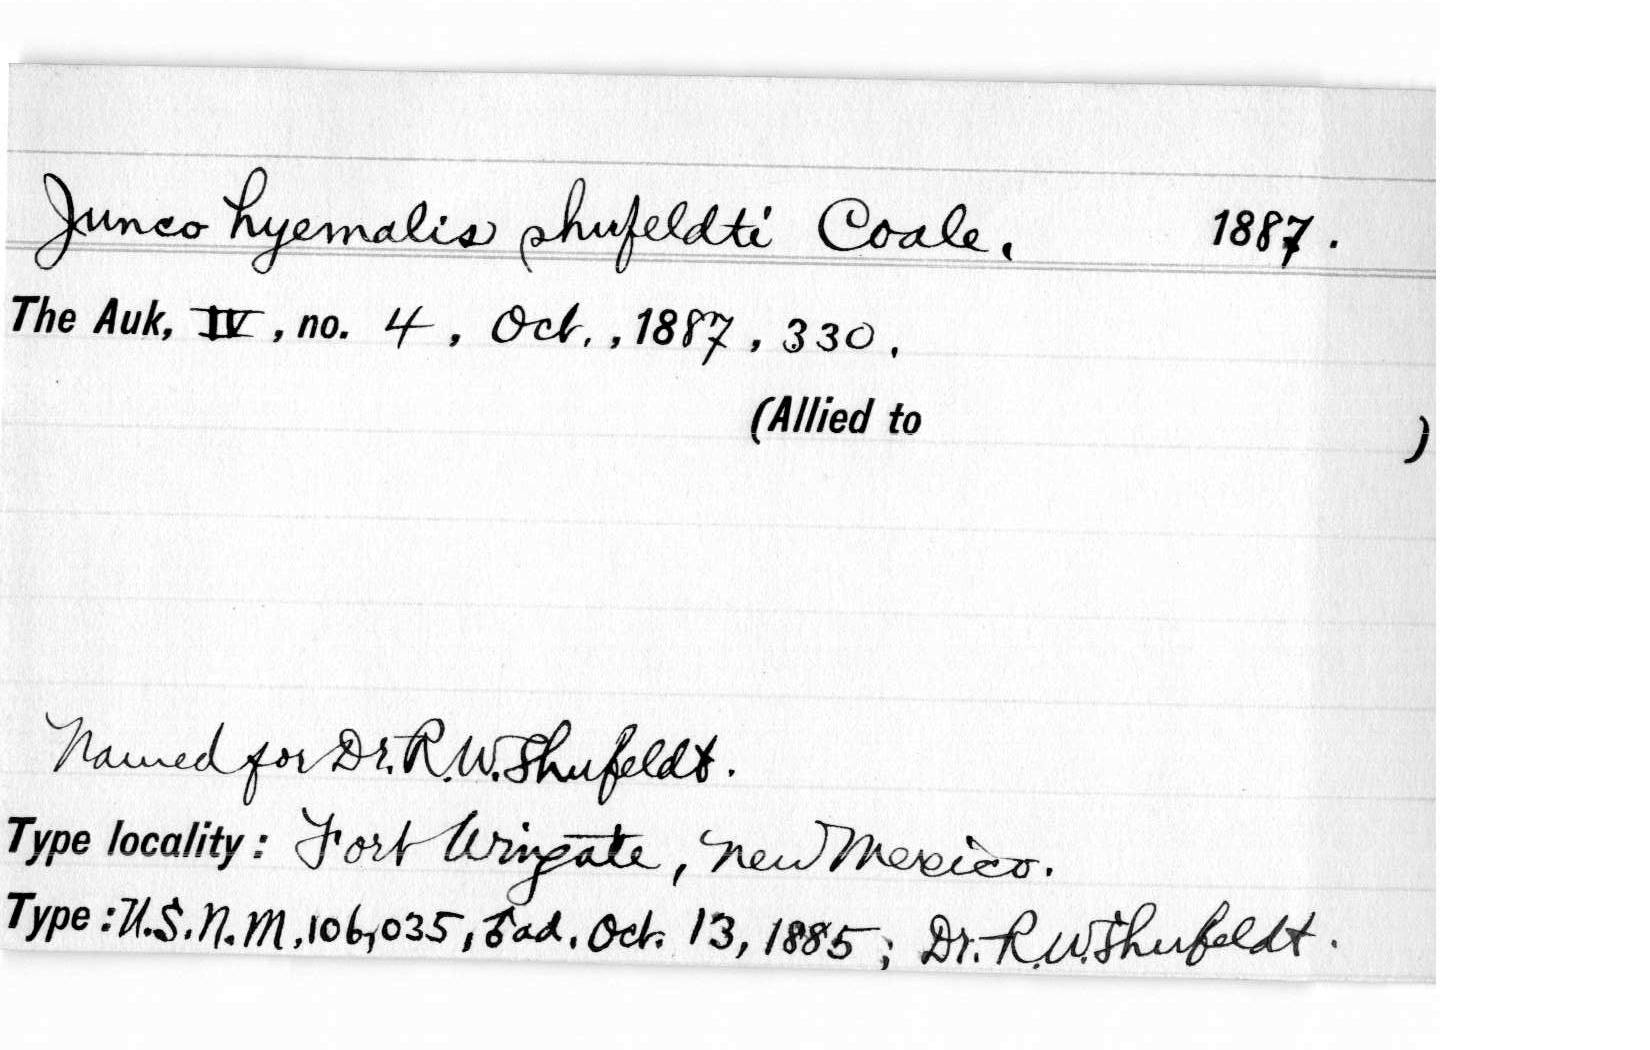 Junco hyemalis shufeldti Coale. 1887.
The Auk, IV, no. 4, Oct., 1887, 330.
(Allied to )
Named for Dr. R. W. Shufeldt.
Type locality: Fort Wingate, New Mexico.
Type: U.S.N.M. 106,035, ♂ ad. Oct. 13, 1885; Dr. R. W. Shufeldt.